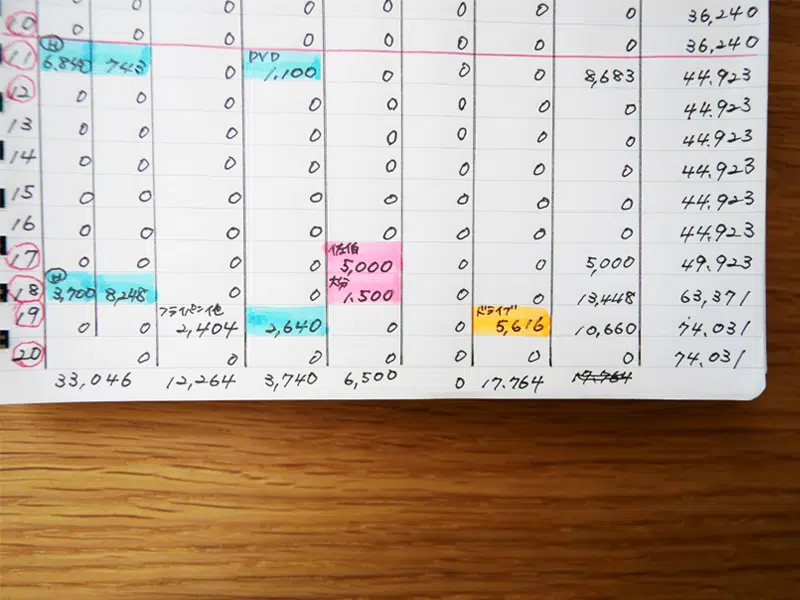 ⑩ 0 0 0 0 0 0 0 0 36,240
0 0 0 0 0 0 0 36,240
⑪ 6,840 743 0 DVD 1,100 0 0 0 8,683 44,923
⑫ 0 0 0 0 0 0 0 0 44,923
13 0 0 0 0 0 0 0 0 44,923
14 0 0 0 0 0 0 0 0 44,923
15 0 0 0 0 0 0 0 0 44,923
16 0 0 0 0 0 0 0 0 44,923
⑰ 0 0 0 0 佐伯 5,000 0 0 5,000 49,923
⑱ 3,700 8,248 0 0 大分 1,500 0 0 13,448 63,371
⑲ 0 0 フライパン他 2,404 2,640 0 0 ドライブ 5,616 10,660 74,031
⑳ 0 0 0 0 0 0 0 74,031
33,046 12,264 3,740 6,500 0 17,764 17,764